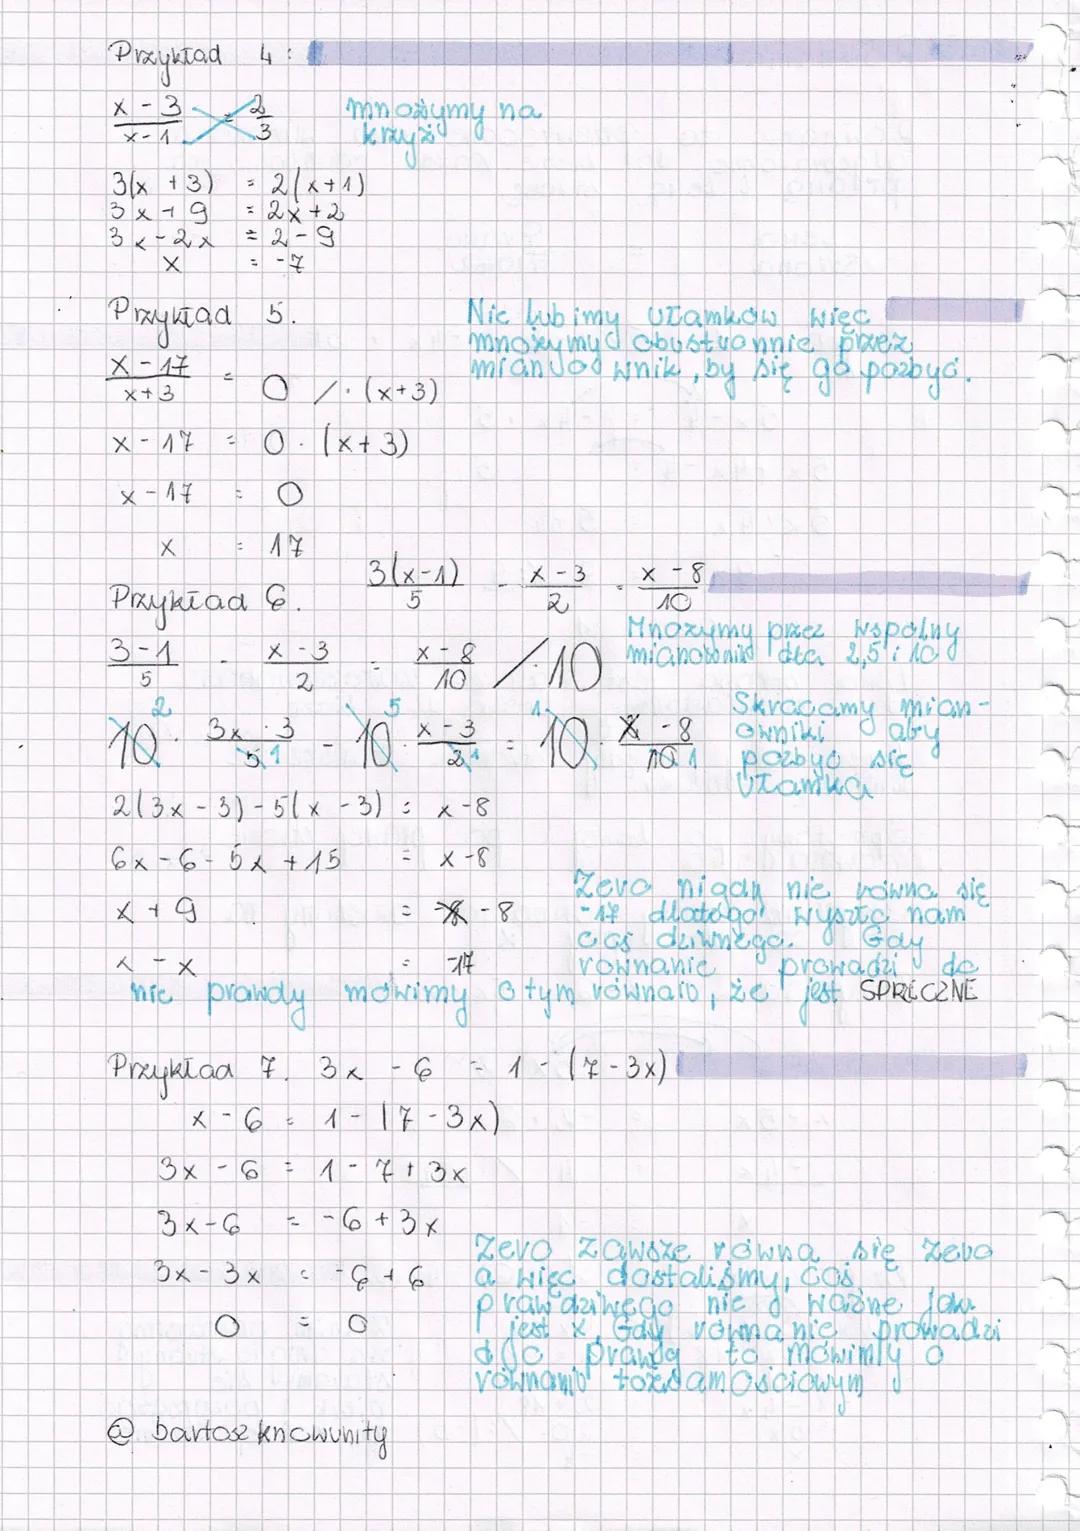 Przykład 4:
x - 3 / x - 1 = 2 / 3 mnożymy na
krzyż
3(x + 3) = 2(x+1)
3x + 9 = 2x+2
3x-2x = 2-9
x = -7
Przykład 5. Nie lubimy ułamków więc
mnożymy obustronnie przez
x - 17 / x+3 = 0 /· (x+3) mianownik, by się go pozbyć.
x - 17 = 0 · (x+3)
x - 17 = 0
x = 17
Przykład 6. 3(x-1) / 5 - x - 3 / 2 = x - 8 / 10
Mnożymy przez wspólny
3-1 / 5 - x - 3 / 2 = x - 8 / 10 /·10 mianownik dla 2,5 i 10
Skracamy mian-
10 2 · 3x · 3 / 5 1 - 10 5 · x - 3 / 2 1 = 10 1 · x - 8 / 10 1 owniki aby
pozbyć się
ułamka
2(3x - 3) - 5(x - 3) = x - 8
6x - 6 - 5x + 15 = x - 8
Zero nigdy nie równa się
x + 9 = - 8 -17 dlatego wyszło nam
coś dziwnego. Gdy
x - x = -17 równanie prowadzi do
nie prawdy mówimy o tym, że jest SPRZECZNE
Przykład 7. 3x - 6 = 1 - (7 - 3x)
x - 6 = 1 - (7 - 3x)
3x - 6 = 1 - 7 + 3x
3x - 6 = -6 + 3x
Zero zawsze równa się zero
3x - 3x = -6 + 6 a więc dostaliśmy, coś
prawdziwego nie ważne jaki
0 = 0 jest x. Gdy równanie prowadzi
do prawdy to mówimy o
równaniu tożsamościowym
@ bartosz knowunity